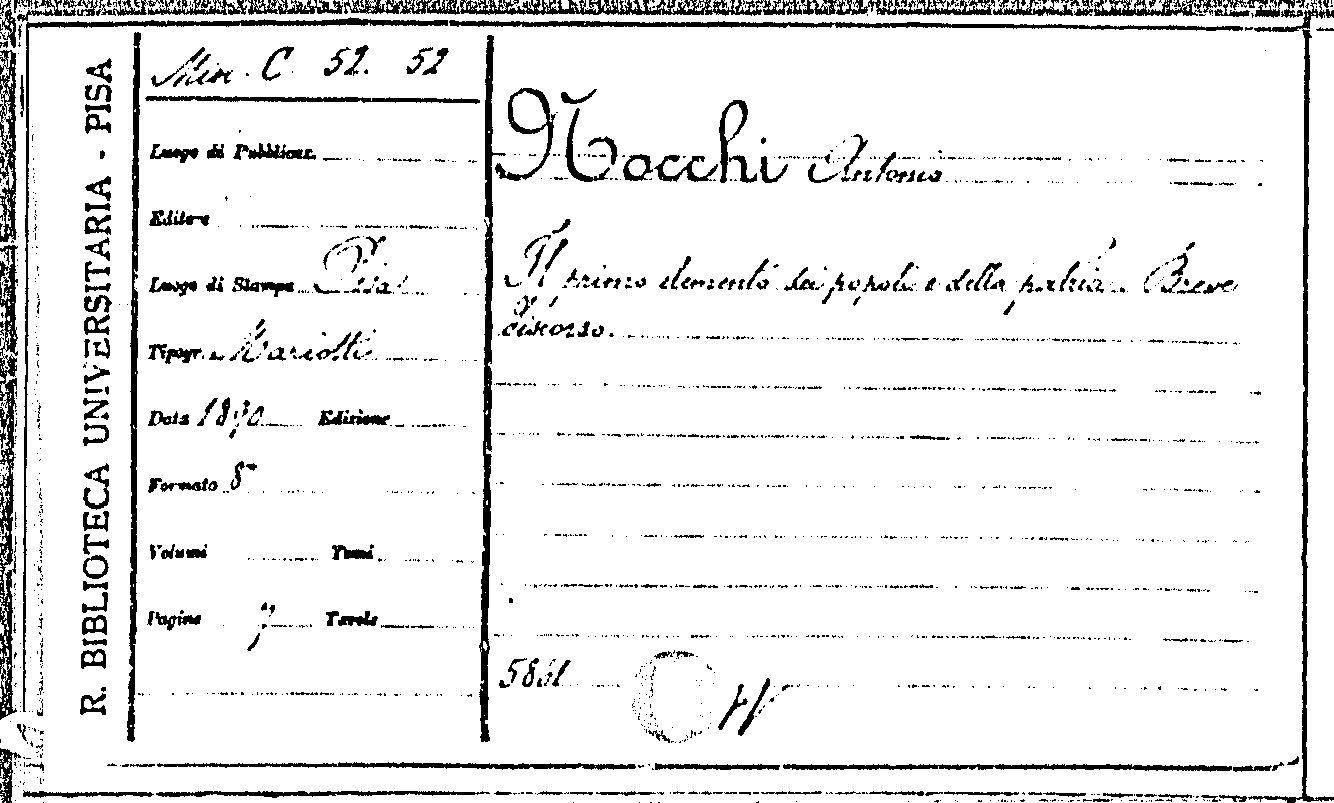 R. BIBLIOTECA UNIVERSITARIA - PISA
Min. C. 52. 52
Luogo di Pubblicaz.
Editore
Luogo di Stampa Pisa
Tipogr. Mariotti
Data 1890 Edizione
Formato 8°
Volumi Tomi
Pagine 7 Tavole
Nocchi Antonio
Il primo elemento dei popoli e della patria. Breve
discorso.
5861